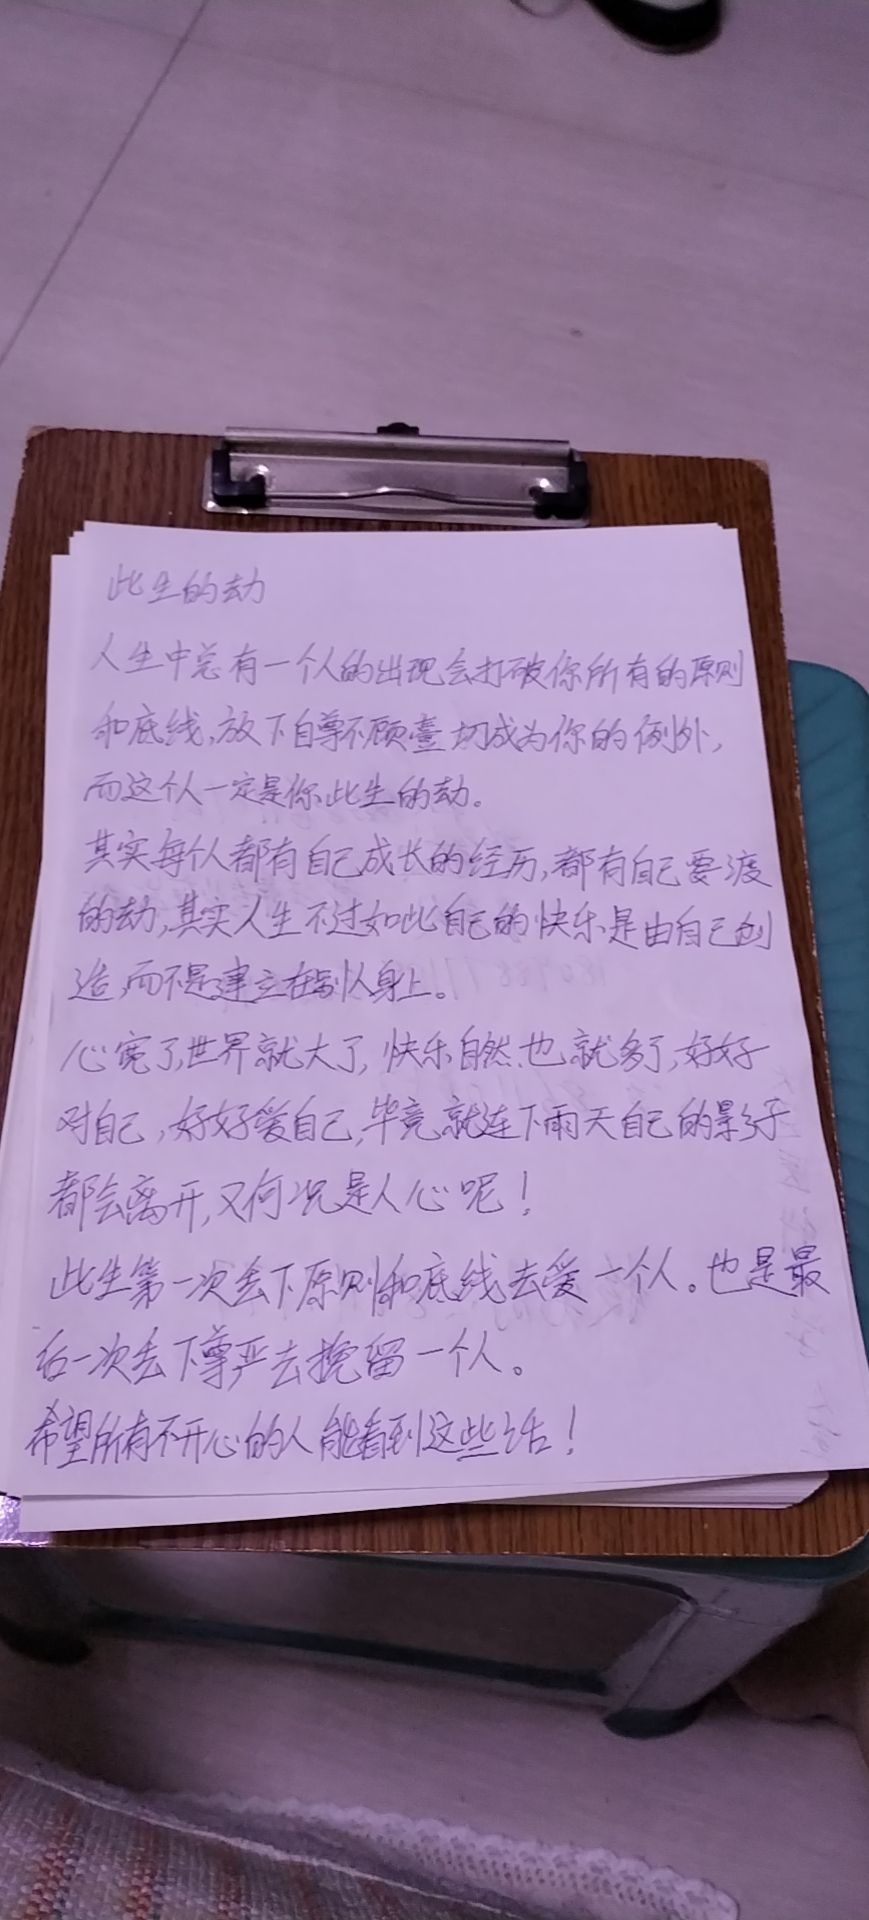 此生的劫
人生中总有一个人的出现会打破你所有的原则
和底线,放下自尊不顾壹切成为你的例外,
而这个人一定是你此生的劫。
其实每个人都有自己成长的经历,都有自己要渡
的劫,其实人生不过如此自己的快乐是由自己创
造,而不是建立在别人身上。
心宽了,世界就大了,快乐自然也就多了,好好
对自己,好好爱自己,毕竟就连下雨天自己的影子
都会离开,又何况是人心呢!
此生第一次丢下原则和底线去爱一个人。也是最
后一次丢下尊严去挽留一个人。
希望所有不开心的人能看到这些话!